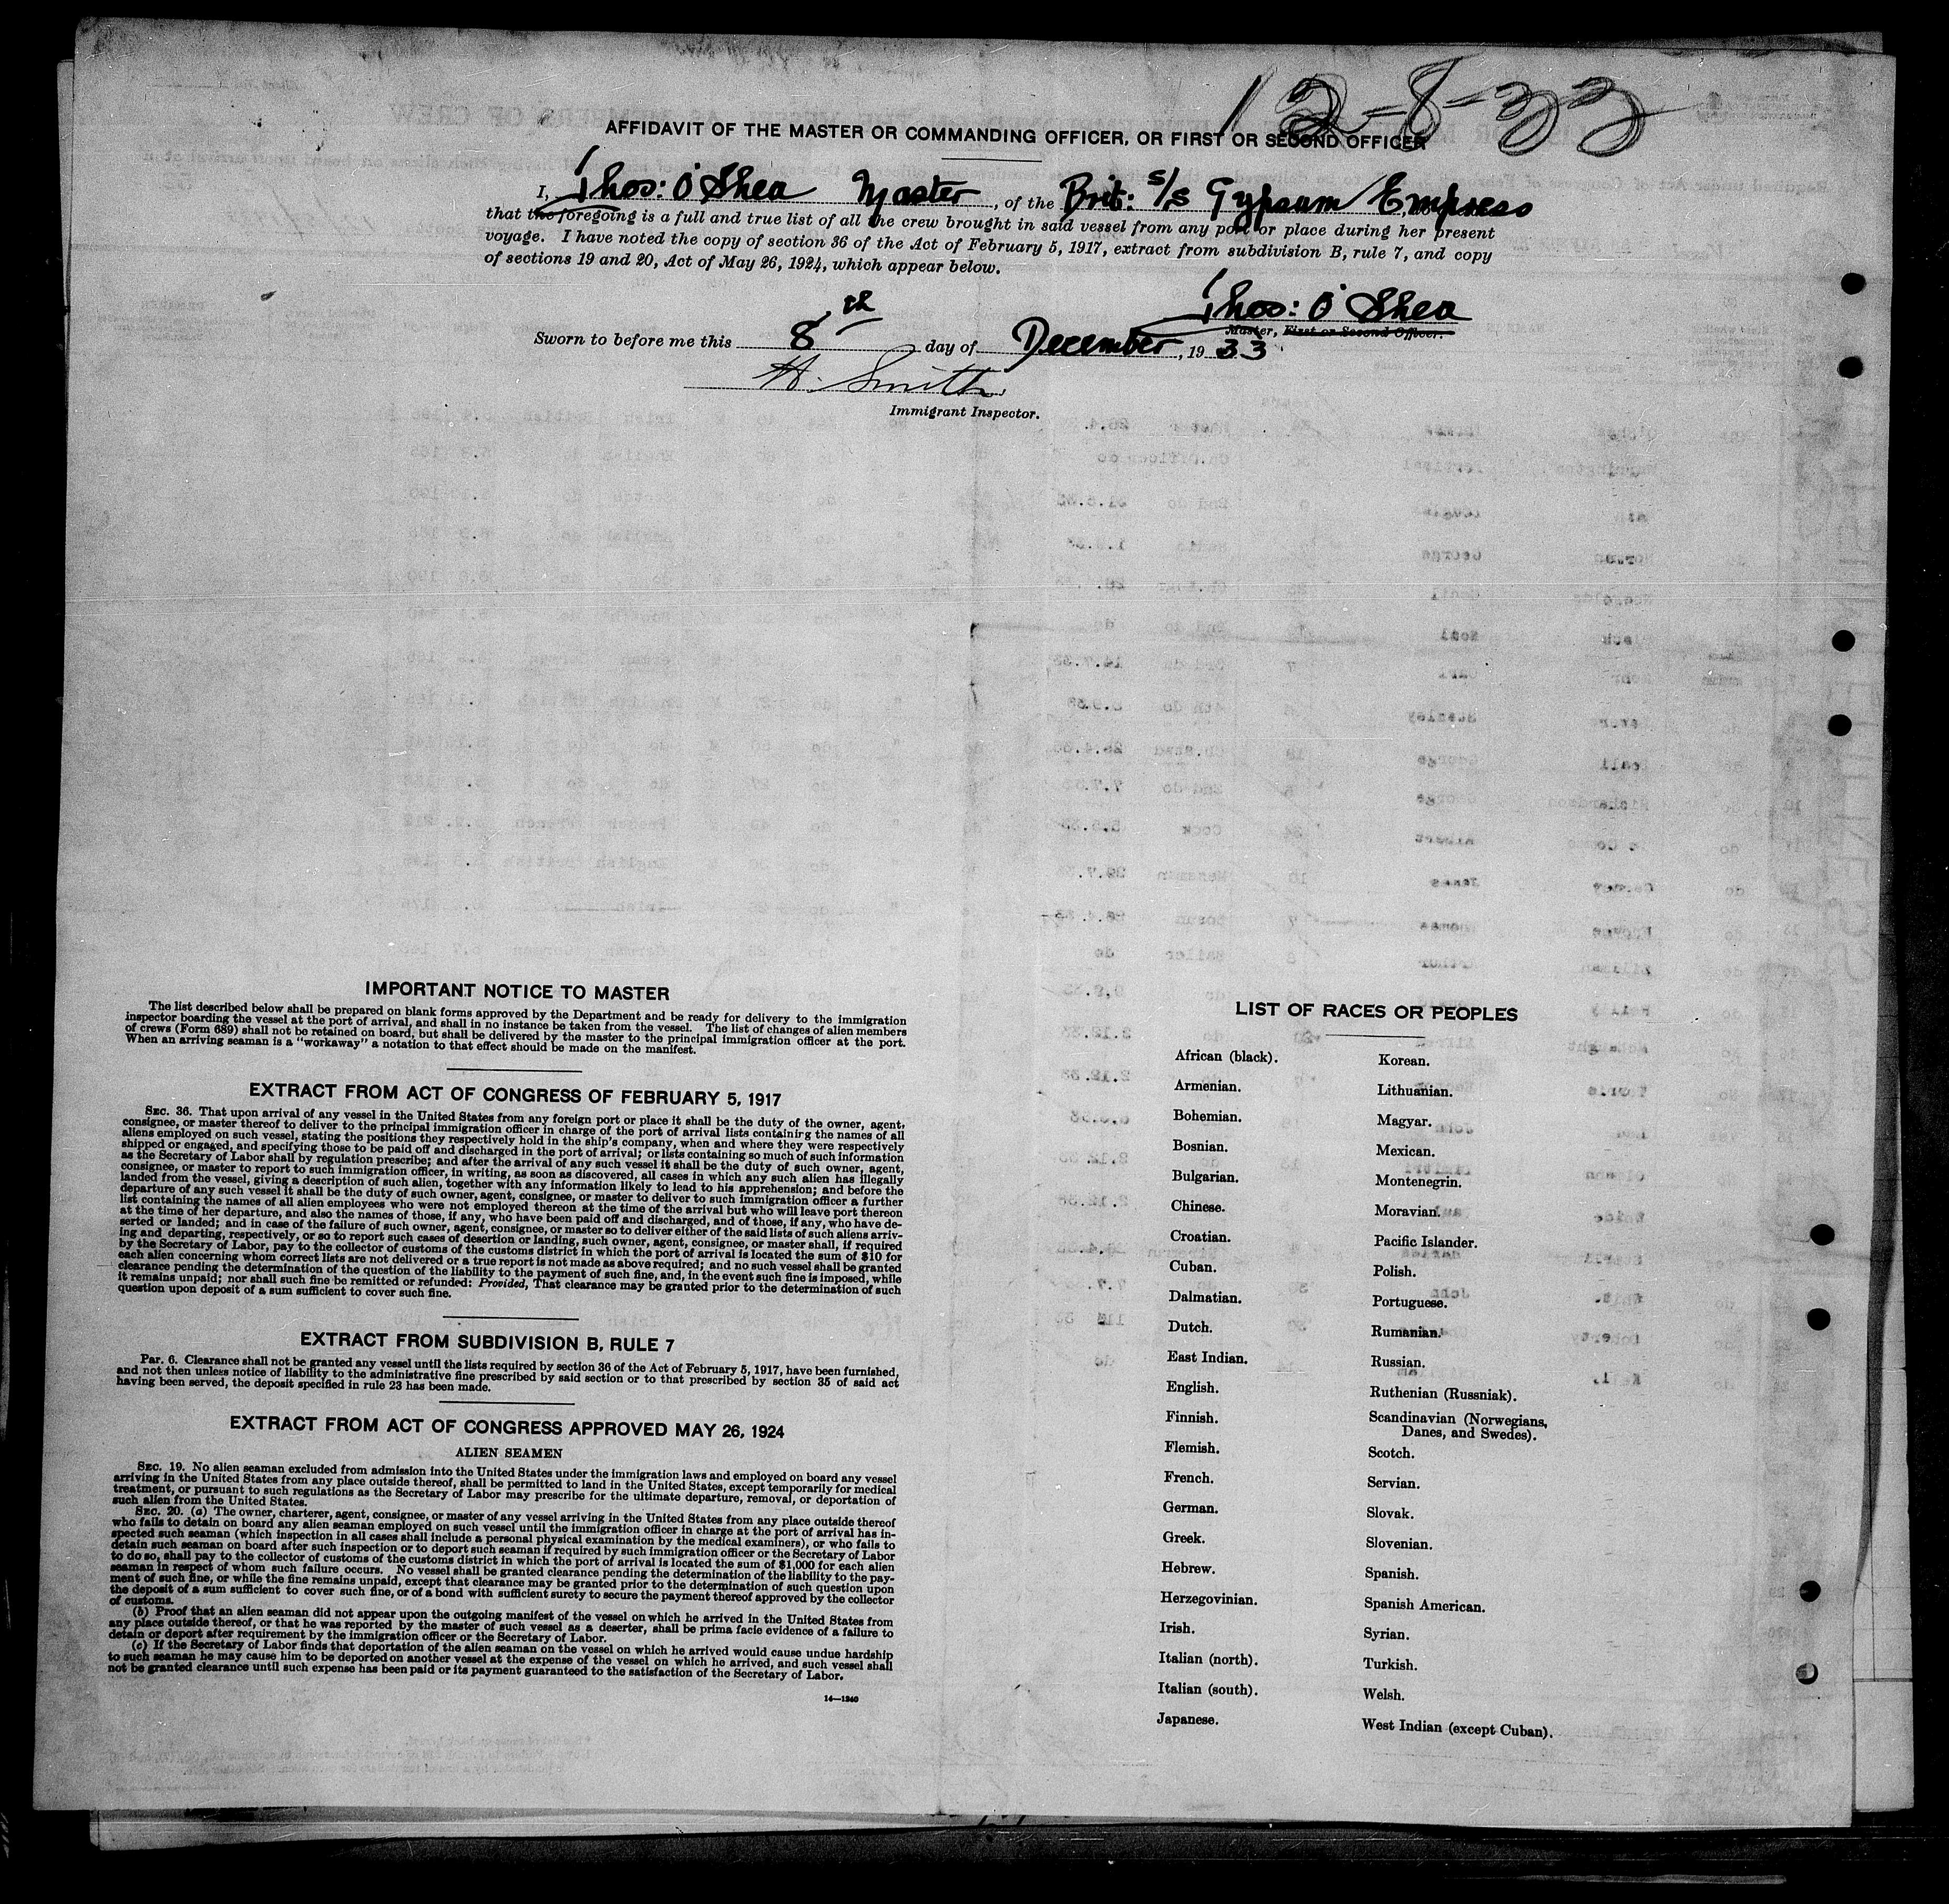 12-8-33
AFFIDAVIT OF THE MASTER OR COMMANDING OFFICER, OR FIRST OR SECOND OFFICER
I, Thos: O'Shea Master, of the Brit: S/S Gypsum Empress
that the foregoing is a full and true list of all the crew brought in said vessel from any port or place during her present
voyage. I have noted the copy of section 36 of the Act of February 5, 1917, extract from subdivision B, rule 7, and copy
of sections 19 and 20, Act of May 26, 1924, which appear below.
Thos: O'Shea
Master, First or Second Officer.
Sworn to before me this 8th day of December, 1933
H. Smith
Immigrant Inspector.
IMPORTANT NOTICE TO MASTER
The list described below shall be prepared on blank forms approved by the Department and be ready for delivery to the immigration
inspector boarding the vessel at the port of arrival, and shall in no instance be taken from the vessel. The list of changes of alien members
of crews (Form 689) shall not be retained on board, but shall be delivered by the master to the principal immigration officer at the port.
When an arriving seaman is a "workaway" a notation to that effect should be made on the manifest.
EXTRACT FROM ACT OF CONGRESS OF FEBRUARY 5, 1917
SEC. 36. That upon arrival of any vessel in the United States from any foreign port or place it shall be the duty of the owner, agent,
consignee, or master thereof to deliver to the principal immigration officer in charge of the port of arrival lists containing the names of all
aliens employed on such vessel, stating the positions they respectively hold in the ship's company, when and where they were respectively
shipped or engaged, and specifying those to be paid off and discharged in the port of arrival; or lists containing so much of such information
as the Secretary of Labor shall by regulation prescribe; and after the arrival of any such vessel it shall be the duty of such owner, agent,
consignee, or master to report to such immigration officer, in writing, as soon as discovered, all cases in which any such alien has illegally
landed from the vessel, giving a description of such alien, together with any information likely to lead to his apprehension; and before the
departure of any such vessel it shall be the duty of such owner, agent, consignee, or master to deliver to such immigration officer a further
list containing the names of all alien employees who were not employed thereon at the time of the arrival but who will leave port thereon
at the time of her departure, and also the names of those, if any, who have been paid off and discharged, and of those, if any, who have de-
serted or landed; and in case of the failure of such owner, agent, consignee, or master so to deliver either of the said lists of such aliens arriv-
ing and departing, respectively, or so to report such cases of desertion or landing, such owner, agent, consignee, or master shall, if required
by the Secretary of Labor, pay to the collector of customs of the customs district in which the port of arrival is located the sum of $10 for
each alien concerning whom correct lists are not delivered or a true report is not made as above required; and no such vessel shall be granted
clearance pending the determination of the question of the liability to the payment of such fine, and, in the event such fine is imposed, while
it remains unpaid; nor shall such fine be remitted or refunded: Provided, That clearance may be granted prior to the determination of such
question upon deposit of a sum sufficient to cover such fine.
EXTRACT FROM SUBDIVISION B, RULE 7
Par. 6. Clearance shall not be granted any vessel until the lists required by section 36 of the Act of February 5, 1917, have been furnished,
and not then unless notice of liability to the administrative fine prescribed by said section or to that prescribed by section 35 of said act
having been served, the deposit specified in rule 23 has been made.
EXTRACT FROM ACT OF CONGRESS APPROVED MAY 26, 1924
ALIEN SEAMEN
SEC. 19. No alien seaman excluded from admission into the United States under the immigration laws and employed on board any vessel
arriving in the United States from any place outside thereof, shall be permitted to land in the United States, except temporarily for medical
treatment, or pursuant to such regulations as the Secretary of Labor may prescribe for the ultimate departure, removal, or deportation of
such alien from the United States.
SEC. 20. (a) The owner, charterer, agent, consignee, or master of any vessel arriving in the United States from any place outside thereof
who fails to detain on board any alien seaman employed on such vessel until the immigration officer in charge at the port of arrival has in-
spected such seaman (which inspection in all cases shall include a personal physical examination by the medical examiners), or who fails to
detain such seaman on board after such inspection or to deport such seaman if required by such immigration officer or the Secretary of Labor
to do so, shall pay to the collector of customs of the customs district in which the port of arrival is located the sum of $1,000 for each alien
seaman in respect of whom such failure occurs. No vessel shall be granted clearance pending the determination of the liability to the pay-
ment of such fine, or while the fine remains unpaid, except that clearance may be granted prior to the determination of such question upon
the deposit of a sum sufficient to cover such fine, or of a bond with sufficient surety to secure the payment thereof approved by the collector
of customs.
(b) Proof that an alien seaman did not appear upon the outgoing manifest of the vessel on which he arrived in the United States from
any place outside thereof, or that he was reported by the master of such vessel as a deserter, shall be prima facie evidence of a failure to
detain or deport after requirement by the immigration officer or the Secretary of Labor.
(c) If the Secretary of Labor finds that deportation of the alien seaman on the vessel on which he arrived would cause undue hardship
to such seaman he may cause him to be deported on another vessel at the expense of the vessel on which he arrived, and such vessel shall
not be granted clearance until such expense has been paid or its payment guaranteed to the satisfaction of the Secretary of Labor.
14—1240
LIST OF RACES OR PEOPLES
African (black).
Armenian.
Bohemian.
Bosnian.
Bulgarian.
Chinese.
Croatian.
Cuban.
Dalmatian.
Dutch.
East Indian.
English.
Finnish.
Flemish.
French.
German.
Greek.
Hebrew.
Herzegovinian.
Irish.
Italian (north).
Italian (south).
Japanese.
Korean.
Lithuanian.
Magyar.
Mexican.
Montenegrin.
Moravian.
Pacific Islander.
Polish.
Portuguese.
Rumanian.
Russian.
Ruthenian (Russniak).
Scandinavian (Norwegians,
Danes, and Swedes).
Scotch.
Servian.
Slovak.
Slovenian.
Spanish.
Spanish American.
Syrian.
Turkish.
Welsh.
West Indian (except Cuban).